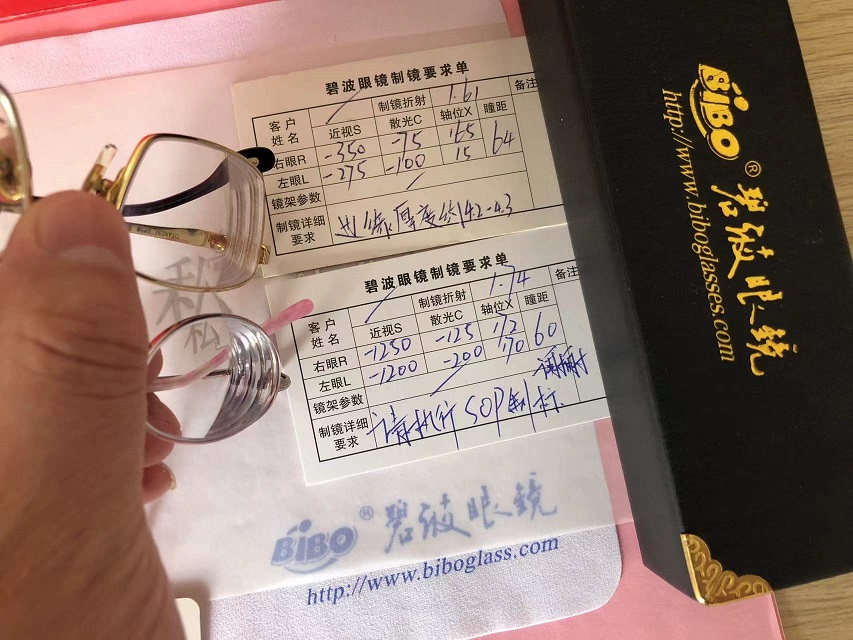 碧波眼镜制镜要求单
客户姓名 近视S 制镜折射 散光C 1.61 轴位X 瞳距 备注
右眼R -350 -75 165 64
左眼L -275 -100 15
镜架参数
制镜详细要求 厚度 4.2-4.3
碧波眼镜制镜要求单
客户姓名 近视S 制镜折射 散光C 1.74 轴位X 瞳距 备注
右眼R -1250 -125 172 60
左眼L -1200 -200 170
镜架参数 谢谢
制镜详细要求 请执行SOP制标
BiBO® 碧波眼镜
http://www.biboglass.com
BiBO® 碧波眼镜
http://www.biboglasses.com
私
私